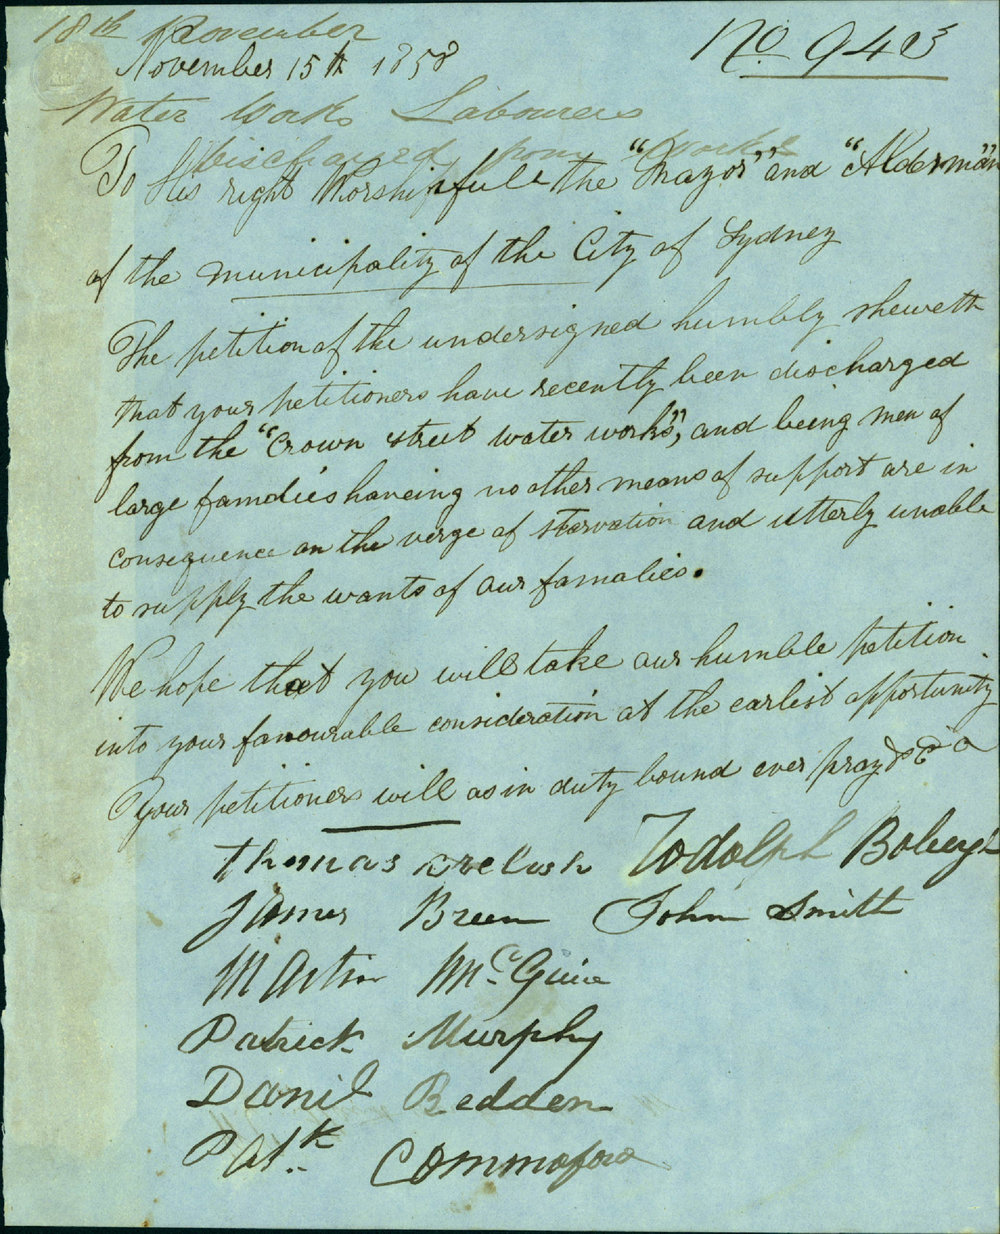 18th November
November 15th 1858
No. 943
Water Works Labourers
discharged from works
To His right Worshipfull the "Mayor" and "Alderman"
of the municipality of the City of Sydney
The petition of the undersigned humbly sheweth
that your petitioners have recently been discharged
from the "Crown street water works", and being men of
large families having no other means of support are in
consequence on the verge of starvation and utterly unable
to supply the wants of our famalies.
We hope that you will take our humble petition
into your favourable consideration at the earliest opportunity
your petitioners will as in duty bound ever pray &c &c
Thomas
James Breen John Smith
Martin McGuire
Patrick Murphy
Danil Bedden
Patk Commoford